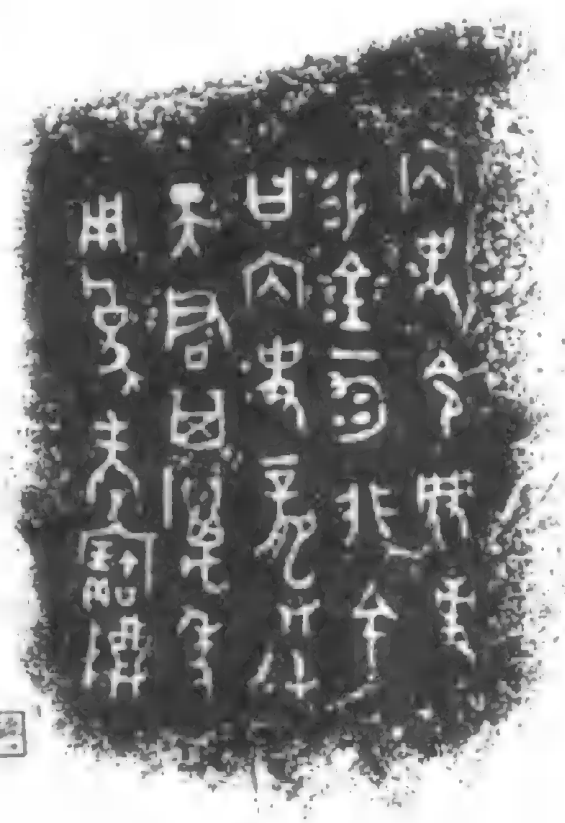 内史令典事
易金一勻非余
曰内史龏朕
天君其萬年
用為考寶尊